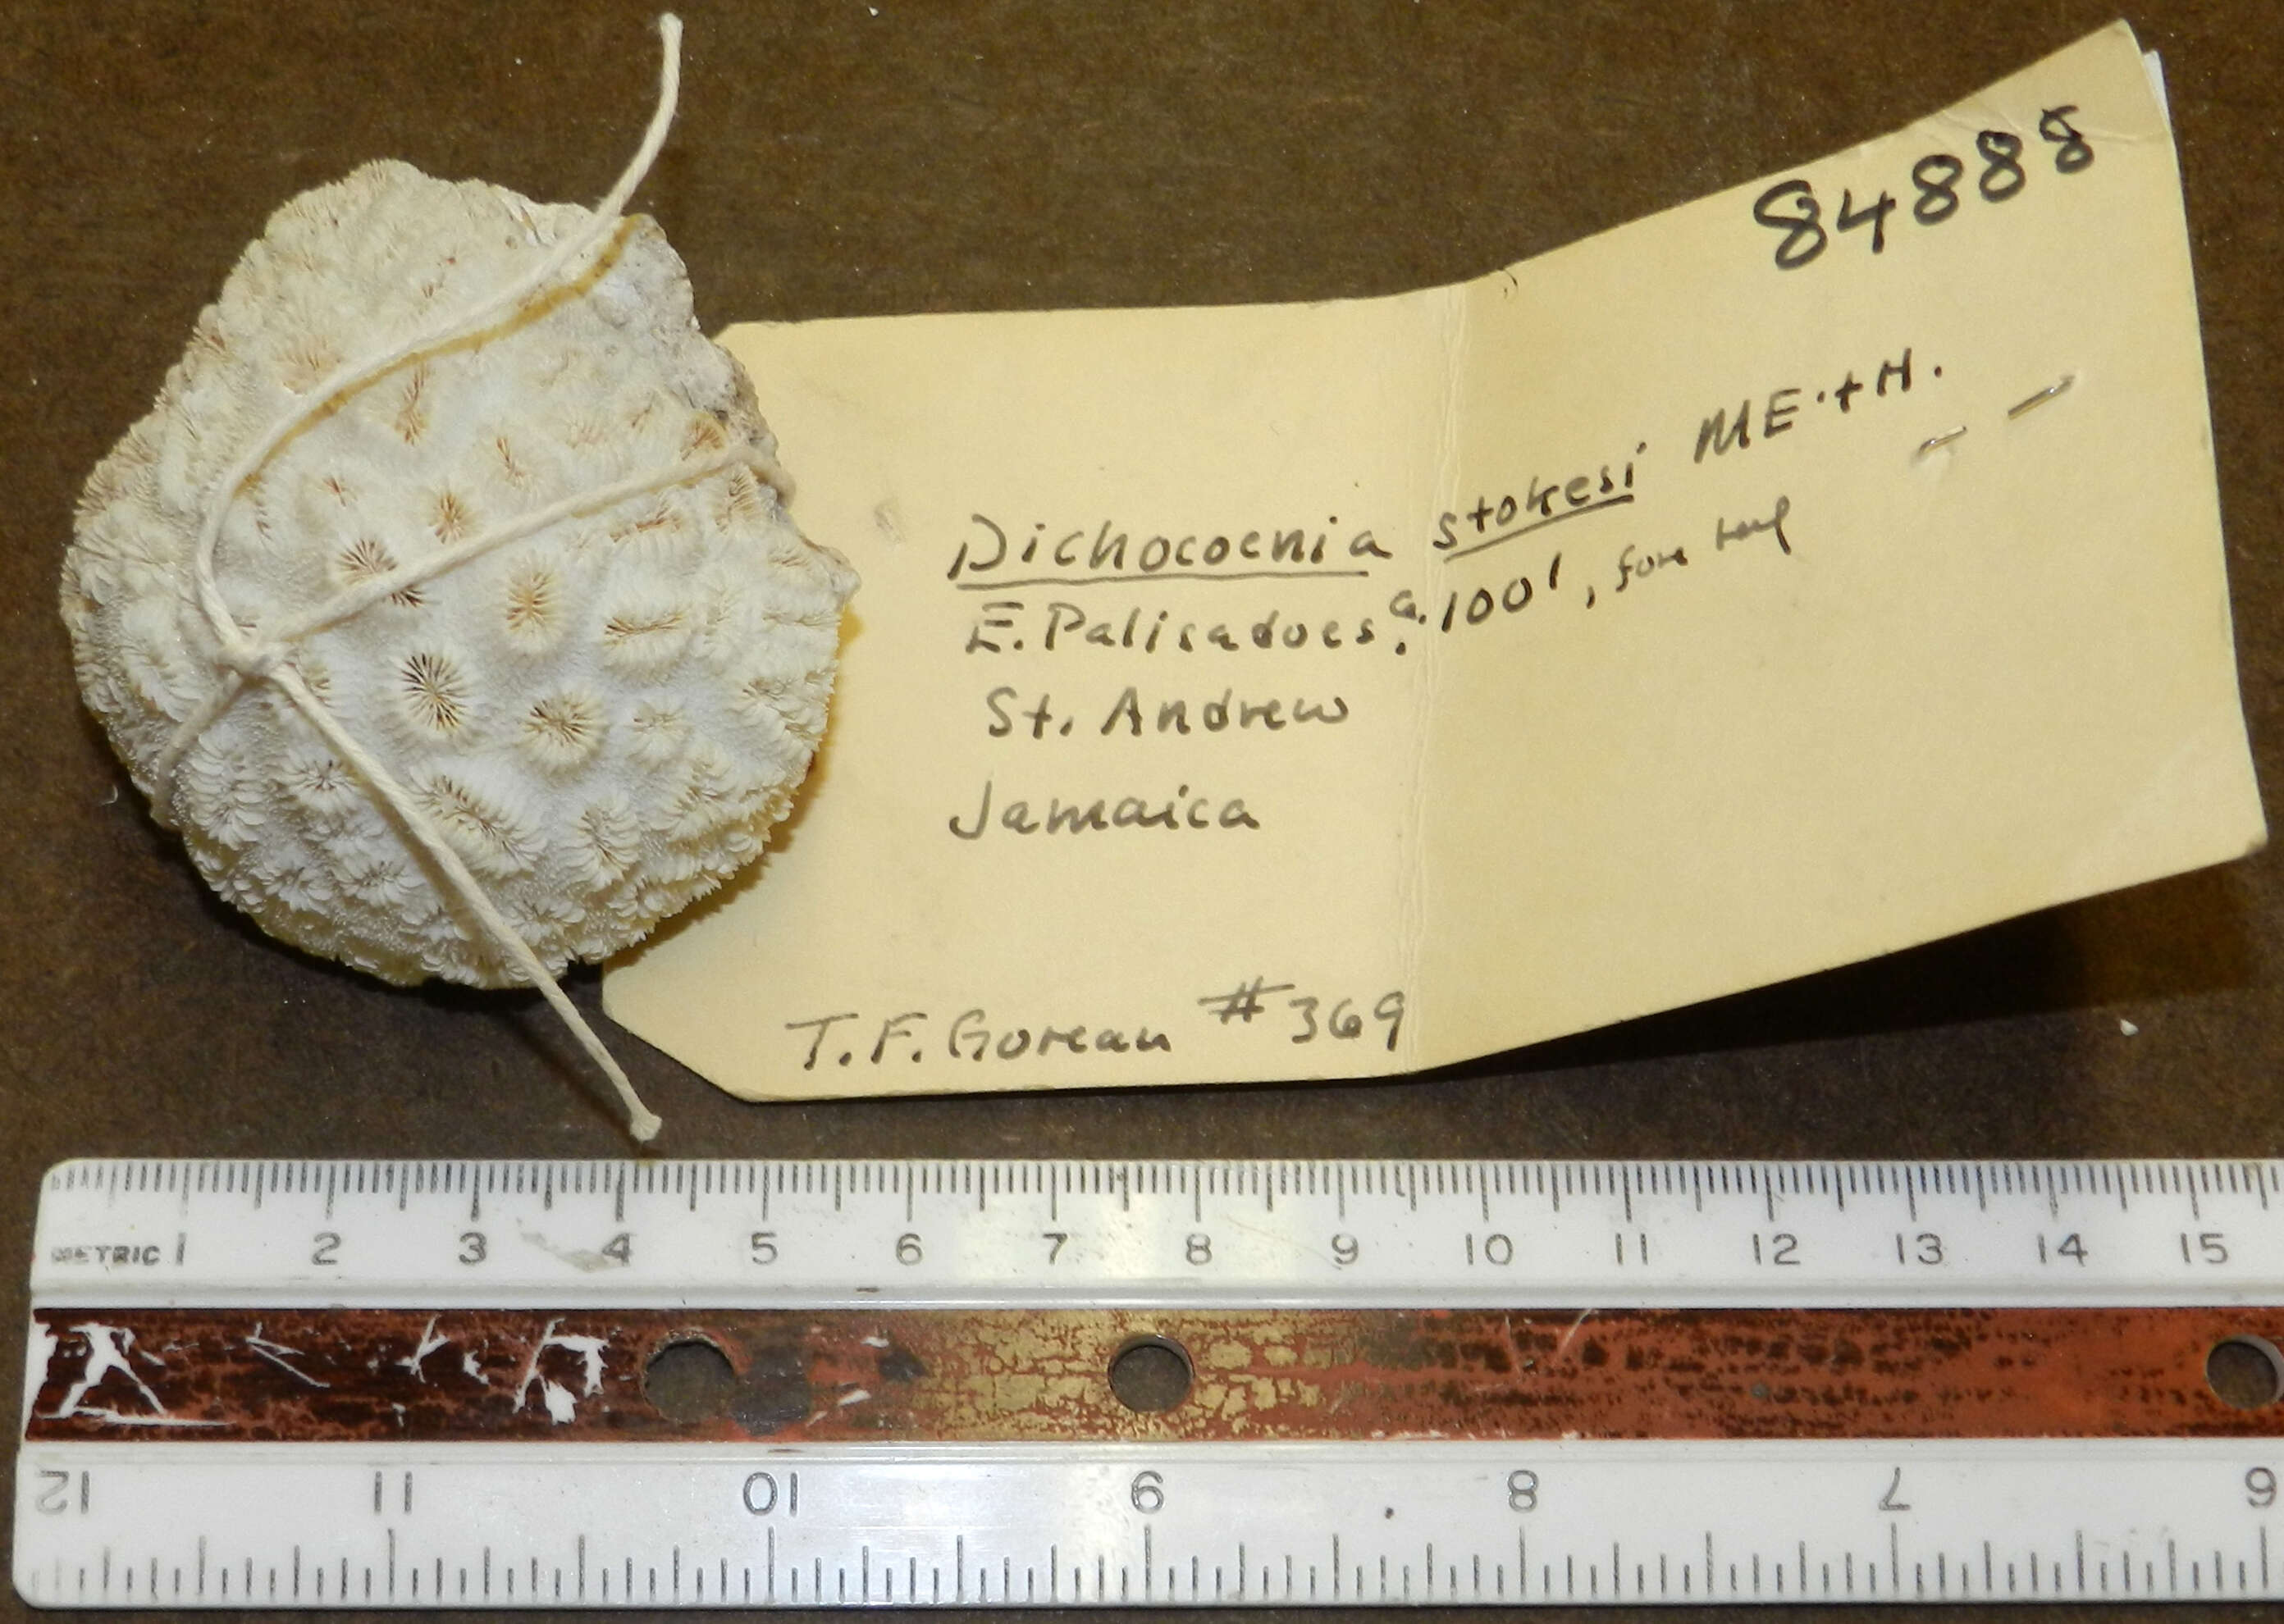 84888
Dichocoenia stokesi ME.+H.
E. Palisadoes, ca. 100', fore reef
St. Andrew
Jamaica
T.F. Goreau #369
METRIC 1 2 3 4 5 6 7 8 9 10 11 12 13 14 15
12 11 10 9 8 7 6